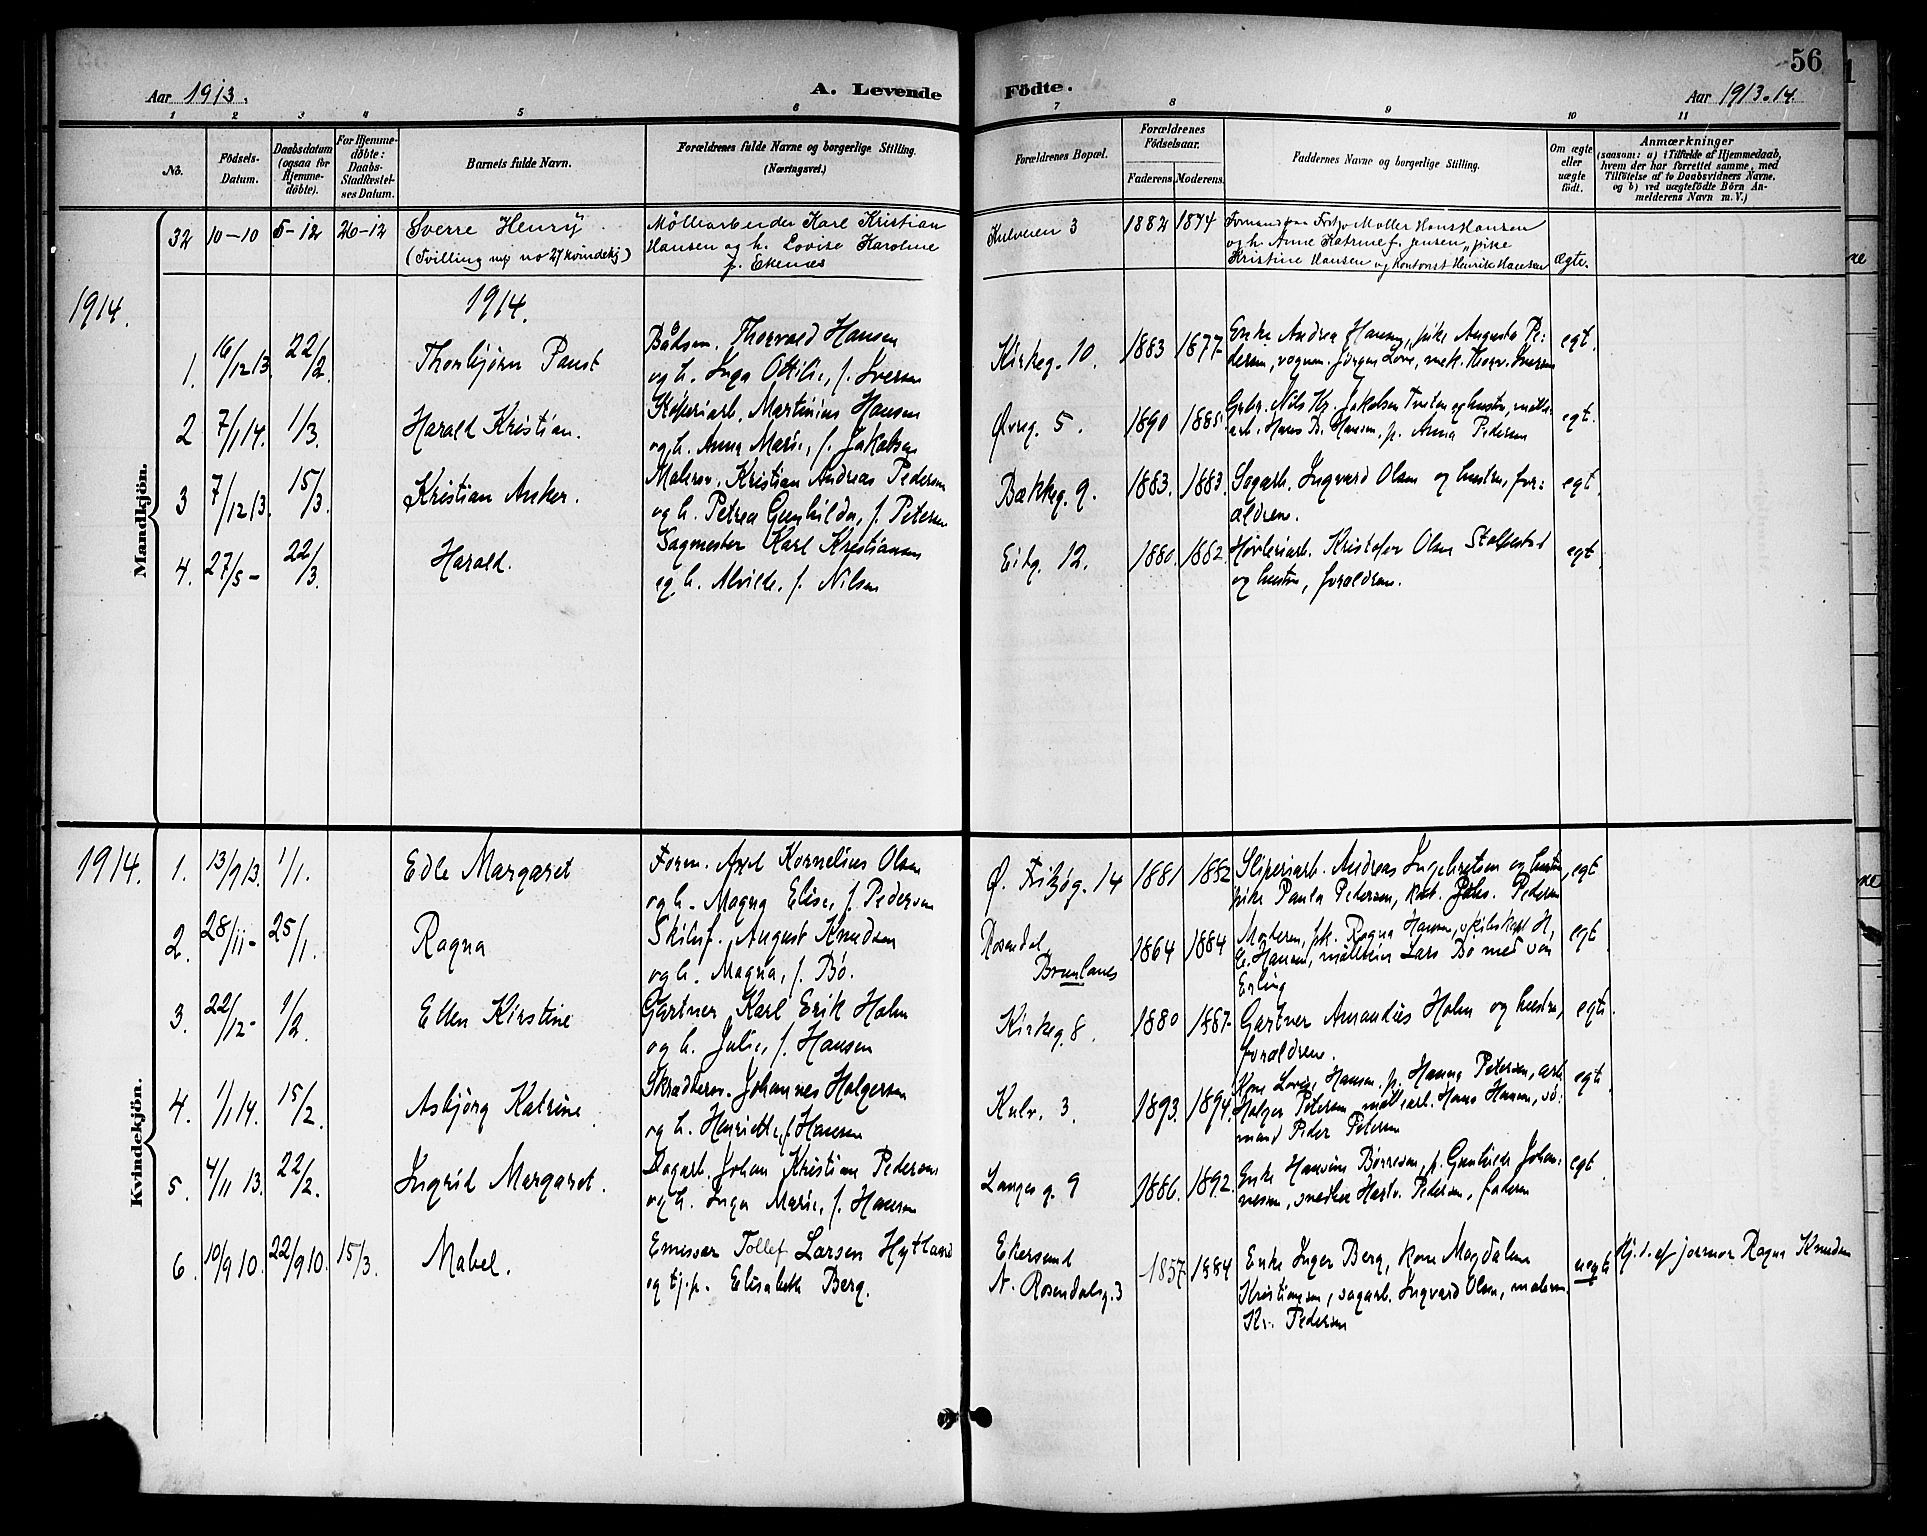 56
Aar 1913.
A. Levende
Födte.
Aar 1913-14.
1 2 3 4 5 6 7 8 9 10 11
No.
Födsels-Datum.
Daabsdatum (ogsaa for Hjemme-döbte).
For Hjemme-döbte: Daabs-Stadfæstel-ses Datum.
Barnets fulde Navn.
Forældrenes fulde Navne og borgerlige Stilling.
(Næringsvei.)
Forældrenes Bopæl.
Forældrenes Födselsaar.
Faderens.
Moderens.
Faddernes Navne og borgerlige Stilling.
Om ægte eller uægte födt.
Anmærkninger
(saasom: a) i Tilfælde af Hjemmedaab,
hvem der har forrettet samme, med
Tilföielse af to Daabsvidners Navne,
og b) ved uægtefödte Börn An-
melderens Navn m. V.)
Mandkjön.
32 10-10 5-12 26-12 Sverre Henry
(Tvilling mp no 27 kvindekj)
Mölliarbeider Karl Kristian
Hansen og h. Lovise Karoline
f. Ekenæs
Kulveien 3 1882 1874
Möller Hans Hansen
og h. Anne Katrine f. Jensen, pike
Kristine Hansen og Kontorist Henrik Hansen
Ægte.
1914.
1914.
1. 16/12 13. 22/2. Thorbjørn Paust
Thorvald Hansen
og h. Inga Ottilie, f. Iversen
Kirkeg. 10. 1883 1877
Enke Andrea Hansen, pike Augusta Pe-
dersen, vognm. Jörgen Love, mek. Thorv. Iversen
egt.
2 7/1 14. 1/3. Harald Kristian.
Støperiarb. Martinius Hansen
og h. Anna Marie, f. Jakobsen
Øvreg. 5. 1890 1885.
Gbr. Nils Kr. Jakobsen Tveten og hustru, mølle-
arb. Hans B. Hansen, p. Anna Pedersen
egt.
3 7/12 13. 15/3. Kristian Anker.
Malersv. Kristian Andreas Pedersen
og h. Petrea Gunhilda, f. Petersen
Bækkeg. 9. 1883. 1883.
Sagarb. Ingvard Olsen og hustru, for-
ældrene.
egt.
4. 27/5 - 22/3. Harald.
Sagmester Karl Kristiansen
og h. Alvilde, f. Nilsen
Eikg. 12. 1880. 1882.
Høvleriarb. Kristofer Olsen Stolpestad
og hustru, forældrene.
egt
Kvindekjön.
1914. 1. 13/9 13. 1/1. Edle Margaret
Form. Axel Kornelius Olsen
og h. Magna Elise, f. Pedersen
Ø. Fritzøg. 14 1881 1882
Sliperiarb. Andreas Ingebretsen og hustru,
pike Paula Pedersen, Johs. Pedersen
egt
2. 28/11 - 25/1. Ragna
Skibsf. August Knudsen
og h. Magna, f. Bø.
Rosendal
Brunlanes
1864 1884
Moderen, pk. Ragna Hansen, skibskapt H,
E. Hansen, Lars Bø med søn
Erling
egt.
3. 22/12 - 1/2. Ellen Kirstine
Gartner Karl Erik Holm
og h. Julie, f. Hansen
Kirkeg. 8. 1880 1887.
Gartner Amandus Holm og hustru,
forældrene.
egt.
4. 1/1 14. 15/2. Asbjörg Katrine.
Skrædersv. Johannes Holgersen
og h. Henriette, f. Hansen
Kulv. 3. 1893. 1894.
Kone Lovise Hansen, p. Hanna Petersen, arb.
Holger Petersen, møllearb. Hans Hansen, sö-
mand Peder Petersen
egt.
5. 4/11 13. 22/2. Ingrid Margaret.
Dagarb. Johan Kristian Pedersen
og h. Inga Marie, f. Hansen
Langes g. 9 1886. 1892.
Enke Hansine Børresen, p. Gunhilde Johan-
nesen, snedker Hartv. Pedersen, faderen
egt.
6. 10/9 10. 22/9 10. 15/3. Mabel.
Emissær Tollef Larsen Hytland
og tj.p. Elisabeth Berg.
Ekersund
N. Rosendalsg. 3
1857 1884
Enke Inger Berg, kone Magdalene
Kristiansen, sagarb. Ingvard Olsen, malersv.
Kr. Pedersen
uegt
Hj. d. af jormor Ragna Knudsen